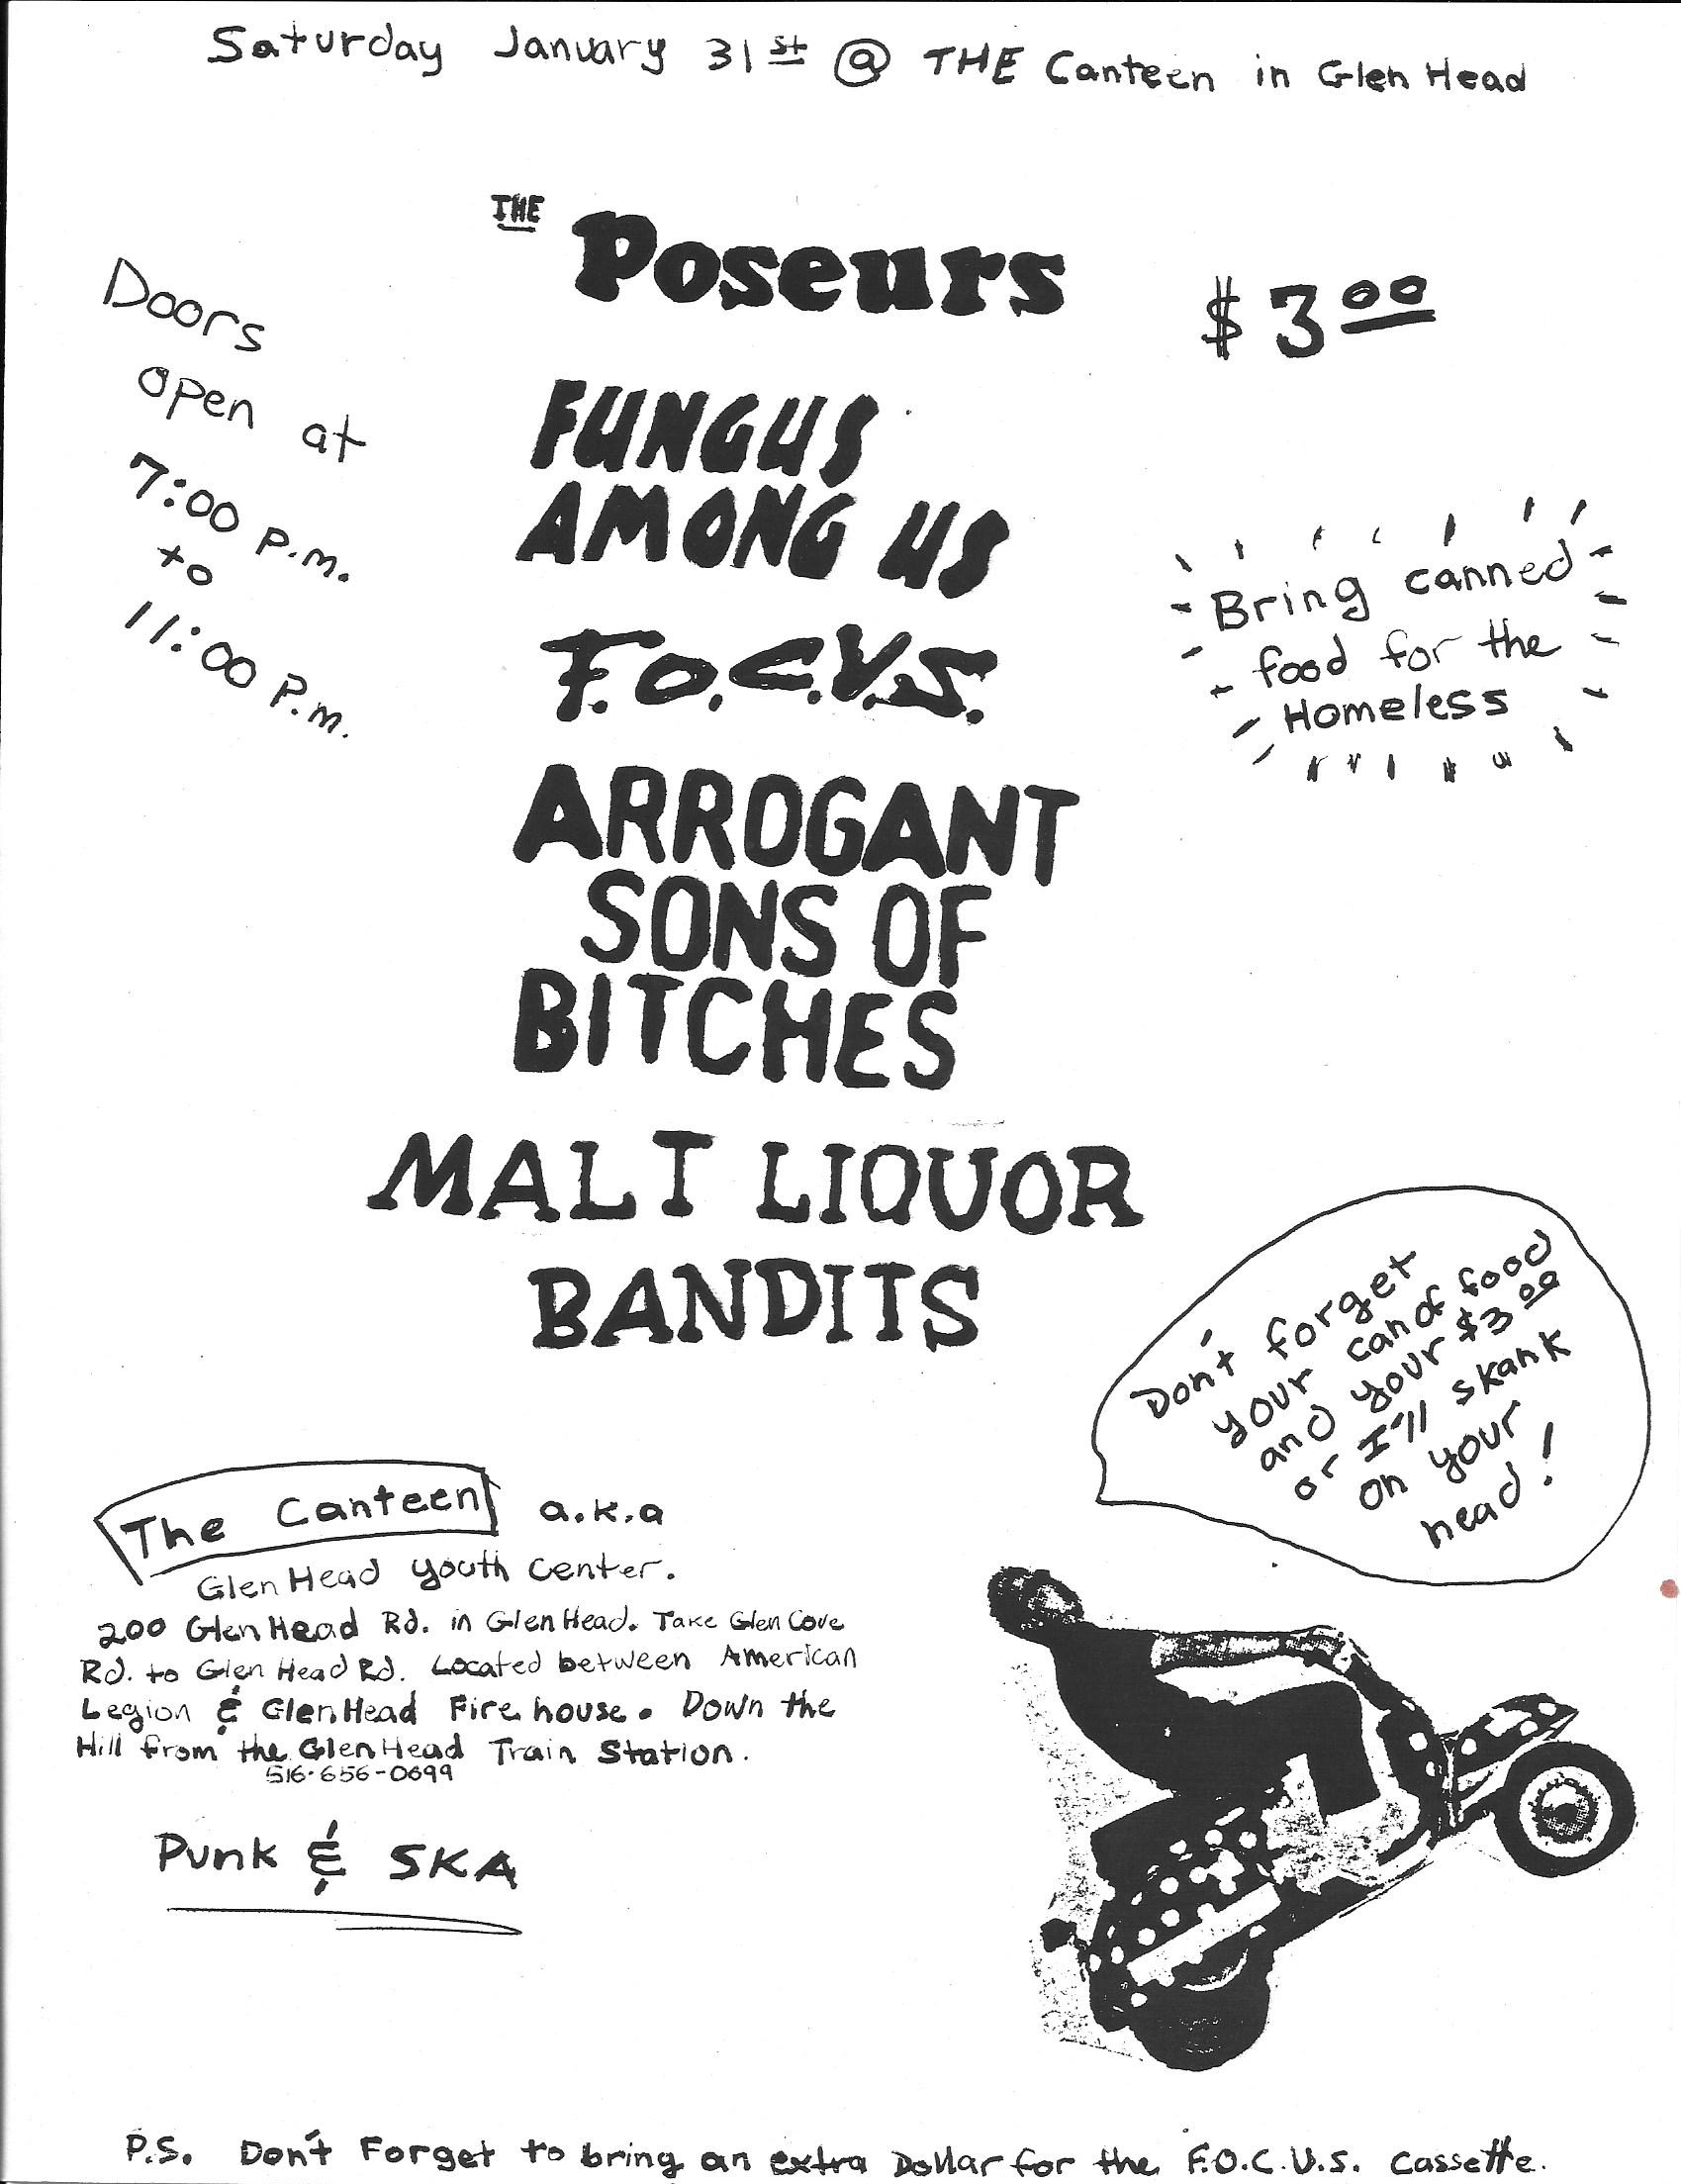 Saturday January 31st @ THE Canteen in Glen Head
THE Poseurs
Doors
open at
7:00 P.m.
to
11:00 P.m.
$3.00
FUNGUS
AMONG US
Bring canned
food for the
Homeless
F.O.C.U.S.
ARROGANT
SONS OF
BITCHES
MALT LIQUOR
BANDITS
Don't forget
your can of food
and your $3.00
or I'll skank
on your
head!
The Canteen a.k.a
Glen Head Youth Center.
200 Glen Head Rd. in Glen Head. Take Glen Cove
Rd. to Glen Head Rd. Located between American
Legion & Glen Head Firehouse. Down the
Hill from the Glen Head Train Station.
516-656-0699
Punk & SKA
P.S. Don't Forget to bring an extra Dollar for the F.O.C.U.S. Cassette.